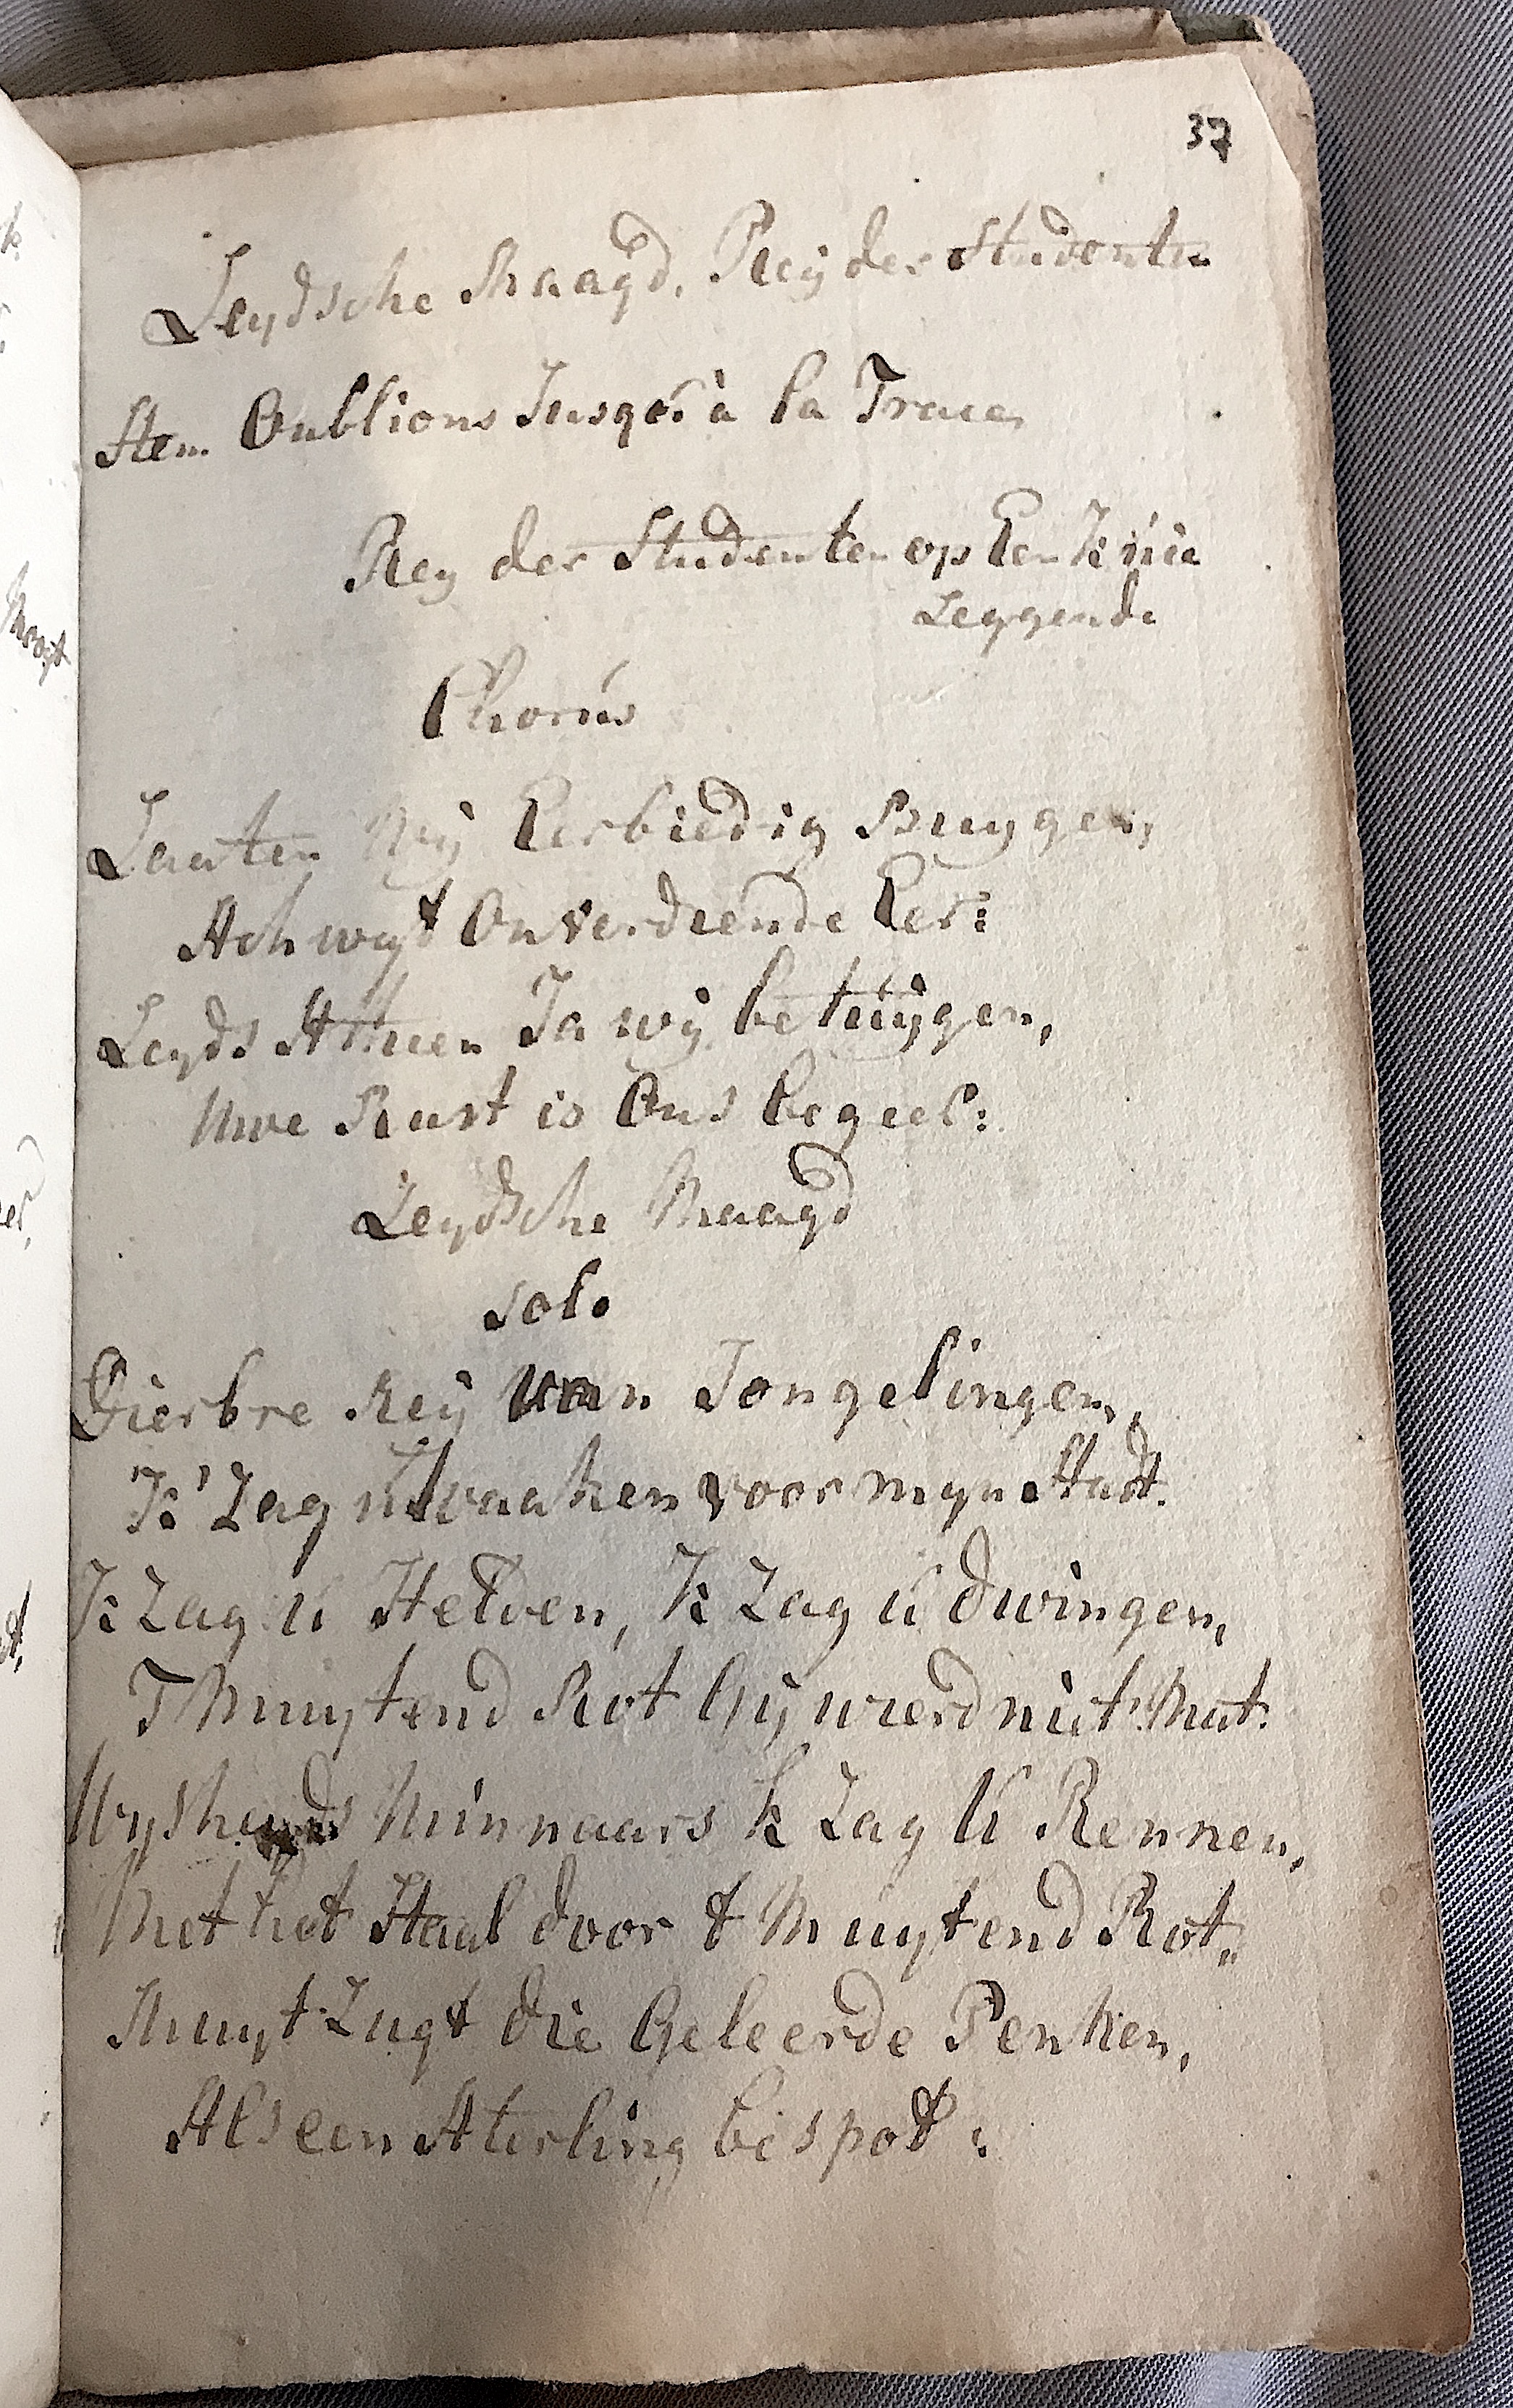 37
Leydsche Maagd, Rey der Studenten
Stem Oublions Jusqu'à la Trace,
Rey der Studenten op Een Knie
Leggende
Chorus
Laaten Wy Eerbiedig Buygen,
Ach wyt Onverdiende Eer:
Leyds Athenen Ja wij betuijgen,
Uwe Rust is Ons begeel:
Leydsche Maagd
Sol.
Dierbre Reij Van Jongelingen,
'K' Zag U waaken voor myn Stadt.
K Zag U Helden, K Zag U dwingen,
T Muytend Rot Gij wierd niet Mat.
Wysheyds Minnaars k Zag U Rennen,
Met het Staal door t Muytend Rot,,
Muyt Zugt die Geleerde Penken,
Als een Aterling bespot: